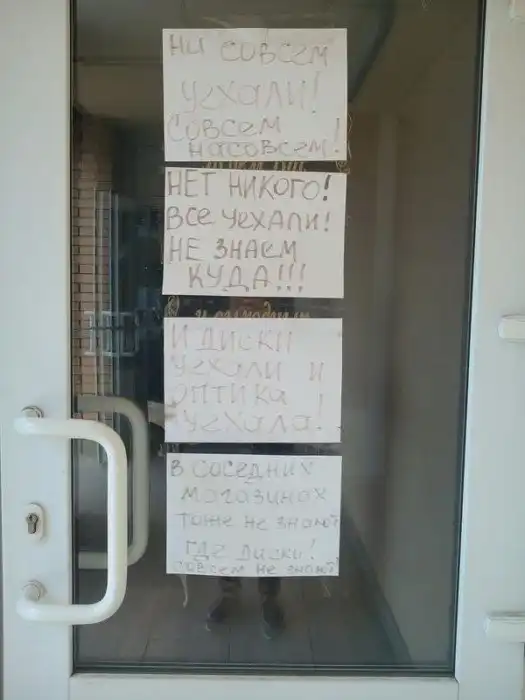 НИ СОВСЕМ
УЕХАЛИ!
СОВСЕМ
НАСОВСЕМ!
НЕТ НИКОГО!
ВСЕ УЕХАЛИ!
НЕ ЗНАЕМ
КУДА!!!
И ДИСКИ
УЕХАЛИ И
ОПТИКА
УЕХАЛА!
В СОСЕДНИХ
МАГАЗИНАХ
ТОЖЕ НЕ ЗНАЮТ
ГДЕ ДИСКИ!
СОВСЕМ НЕ ЗНАЮТ!